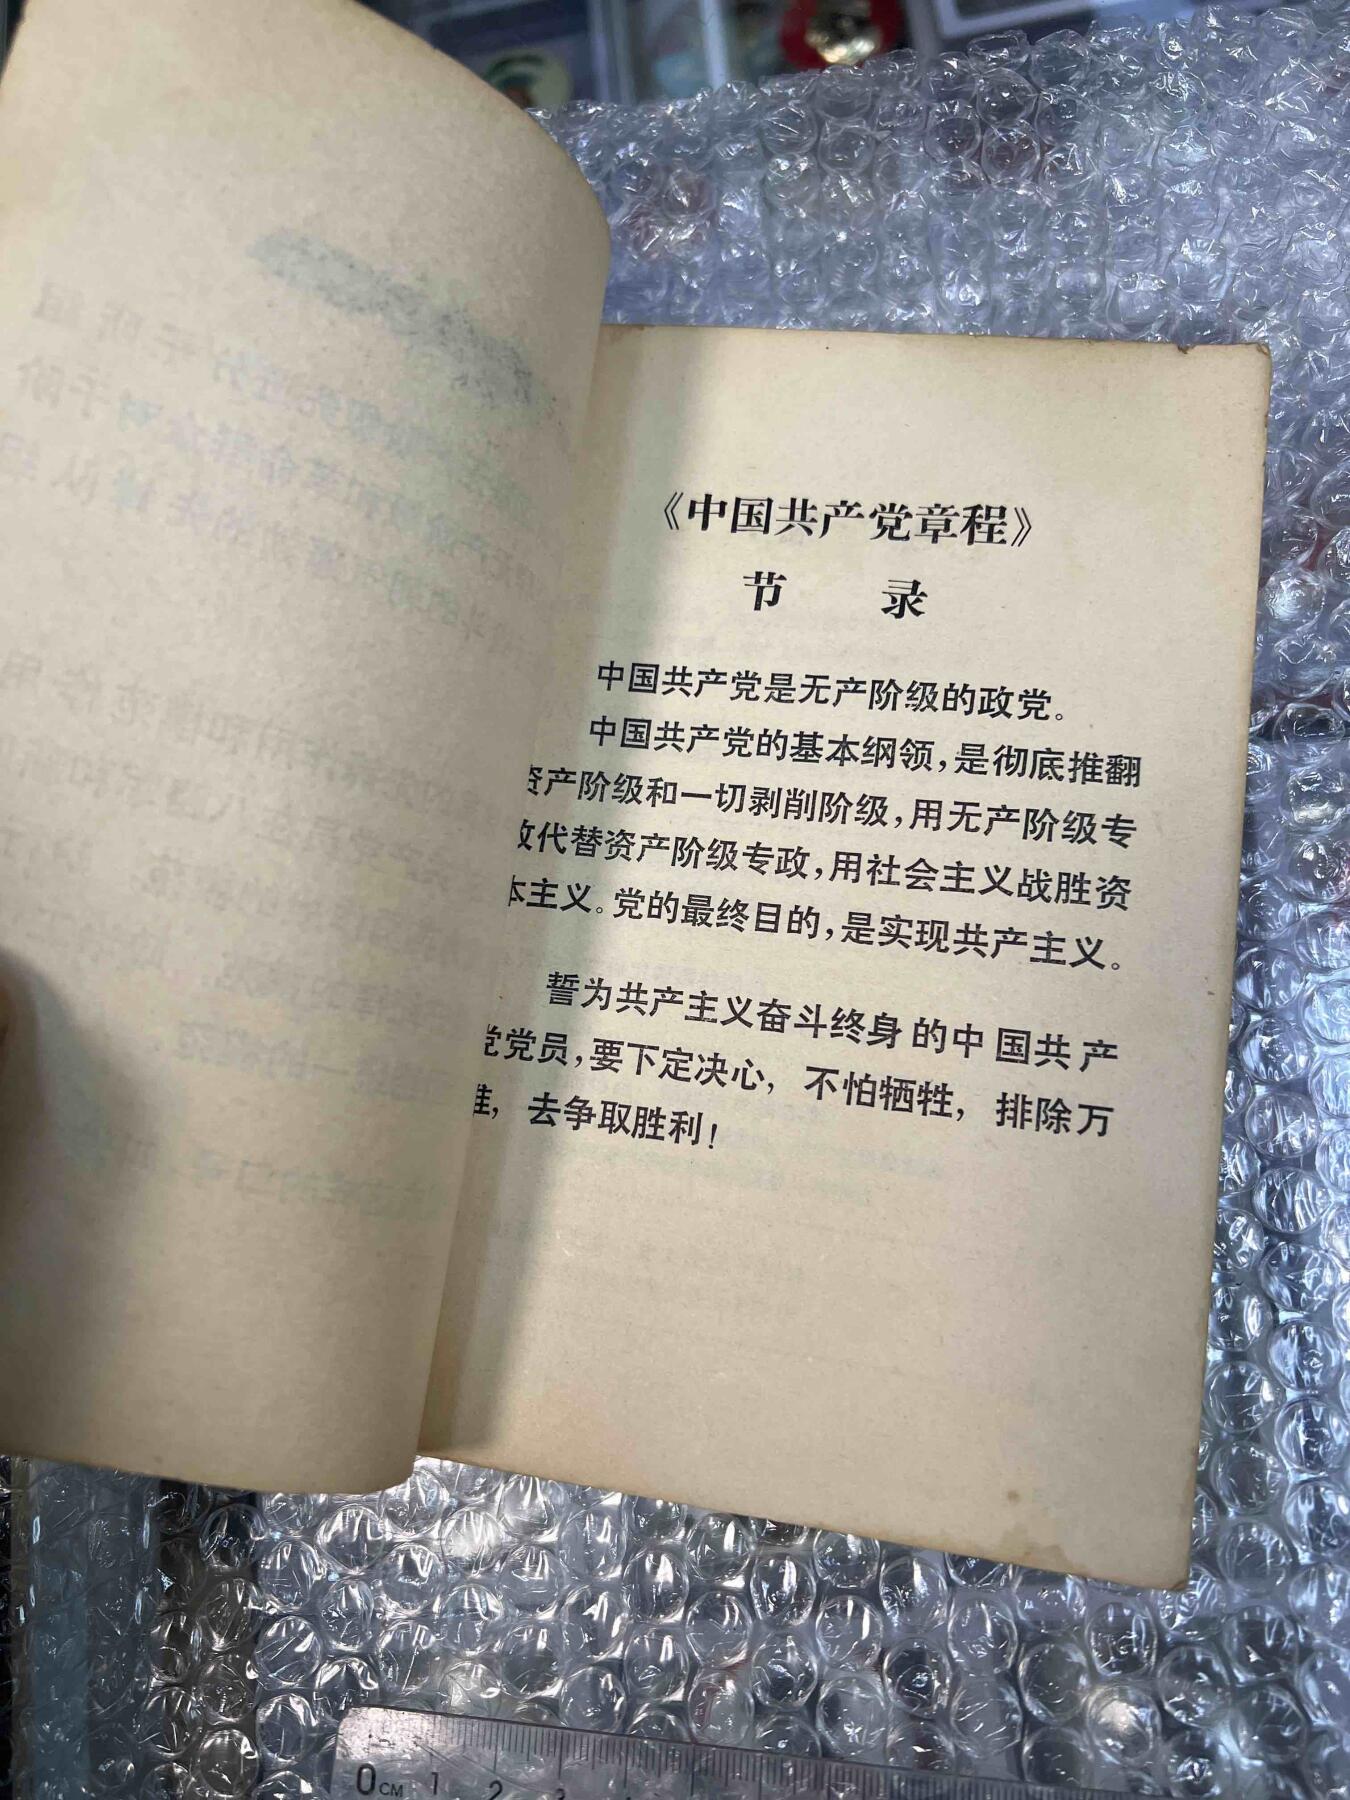 《中国共产党章程》
节 录
中国共产党是无产阶级的政党。
中国共产党的基本纲领，是彻底推翻
资产阶级和一切剥削阶级，用无产阶级专
政代替资产阶级专政，用社会主义战胜资
本主义。党的最终目的，是实现共产主义。
誓为共产主义奋斗终身的中国共产
党党员，要下定决心，不怕牺牲，排除万
难，去争取胜利！
0CM 1 2 3